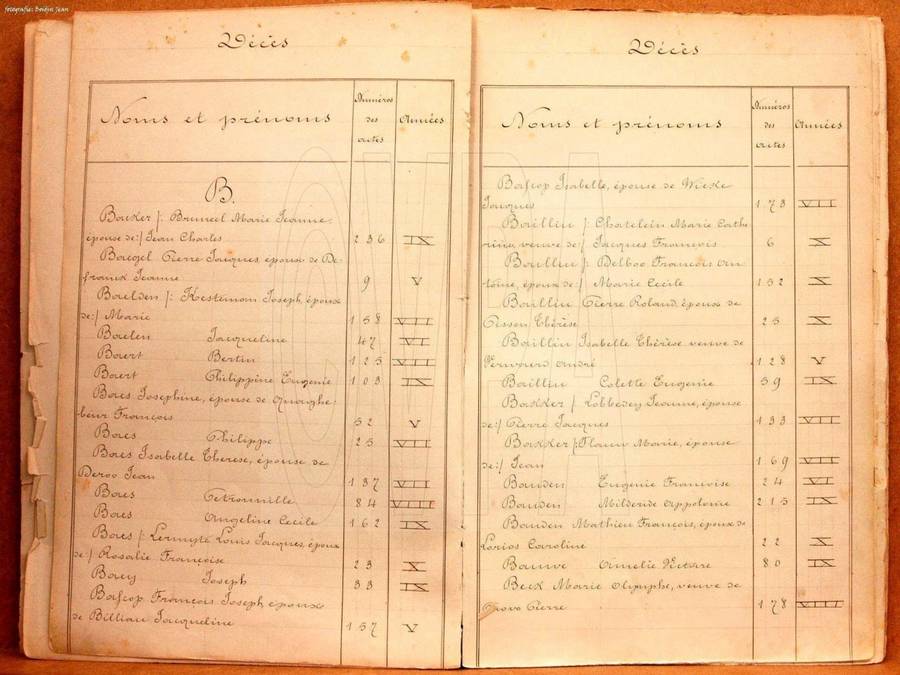 fotografie: Boidin Jean
Décès
Noms et prénoms
Numéros des actes
Années
B.
Backer /: Bruneel Marie Jeanne,
épouse de:/ Jean Charles 236 IX
Pierre Jacques, époux de De-
Jeanne 9 V
Baelden /: Kesteman Joseph, époux
de:/ Marie 158 VII
Baelen Jacqueline 47 VI
Baert Bertin 125 VIII
Baert Philippine Eugenie 103 IX
Baes Josephine, épouse de Quaeghe-
beur François 52 V
Baes Philippe 25 VII
Baes Isabelle Therese, épouse de
Deroo Jean 137 VII
Baes Petronnille 84 VIII
Baes Angeline Cecile 162 IX
Baes /: Lermyte Louis Jacques, époux
de:/ Rosalie Françoise 23 X
Baey Joseph 33 IX
Bafcop François Joseph époux
de Billiau Jacqueline 157 V
Décès
Noms et prénoms
Numéros des actes
Années
Bafcop Isabelle, épouse de
Jacques 173 VII
Baillin /: Chatelein Marie Cathe
rina, veuve de:/ Jacques François 6 X
Baillin /: Delboo François An-
toine, époux de:/ Marie Cecile 152 X
Baillin Pierre Roland, époux de
Pisson Thérèse 25 X
Baillin Isabelle Thérèse veuve de
André 128 V
Baillin Colette Eugenie 59 IX
Bakker /: Lobbedey Jeanne, épouse
de:/ Pierre Jacques 133 VII
Bakker /: Marie, épouse
de:/ Jean 169 VII
Banden Eugenie Françoise 24 VI
Banden Mildende Appolonie 215 IX
Banden Mathieu François, époux de
Lorios Caroline 22 X
Bauve Amelie 80 IX
Beck Marie Olymphe, veuve de
Pierre 178 VIII